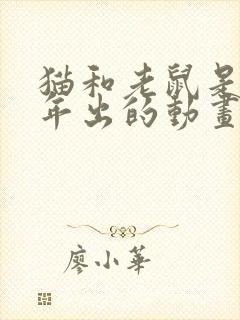 猫和老鼠是
年出的動畫
廖小華